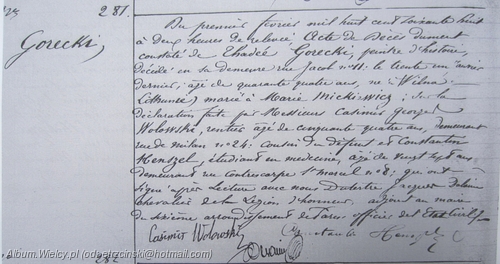 281.
Gorecki,
Du premier février mil huit cent soixante huit
à deux heures de relevée Acte de Décès dument
constaté de Thadée Gorecki, peintre d'histoire,
Décédé en sa demeure rue Jacob n° 11. le trente un janvier
dernier; agé de quarante quatre ans, né à Wilna
(Lithuanie) marié à Marie Mickiewicz; Sur la
déclaration faite par Messieurs Casimir Georges
Wolowski, rentier agé de cinquante quatre ans, demeurant
rue de milan n° 24. cousin du défunt et Constantin
Hentzel, étudiant en médecine, agé de vingt sept ans
demeurant rue Contrescarpe St marcel n° 8; qui ont
signé après Lecture avec nous
chevalier de la Légion d'honneur, adjoint au maire
du sixième arrondissement de Paris officier de l'Etat Civil
Casimir Wolowski
282
Album.Wielcy.pl (odsetrzcinski@hotmail.com)